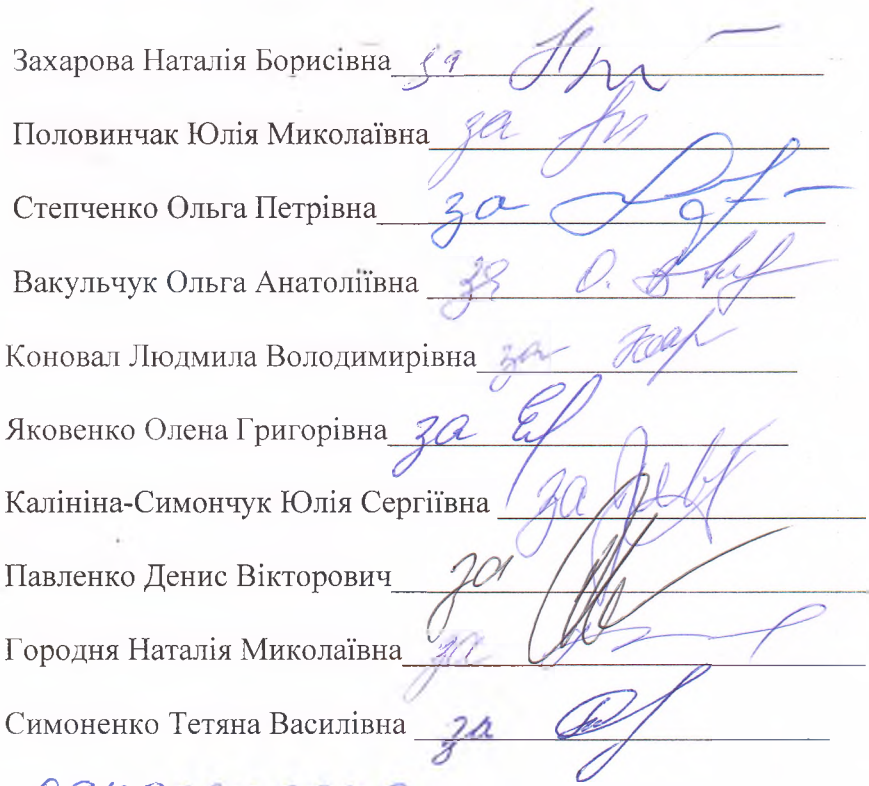 Захарова Наталія Борисівна за
Половинчак Юлія Миколаївна за
Степченко Ольга Петрівна за
Вакульчук Ольга Анатоліївна за
Коновал Людмила Володимирівна за
Яковенко Олена Григорівна за
Калініна-Симончук Юлія Сергіївна за
Павленко Денис Вікторович за
Городня Наталія Миколаївна за
Симоненко Тетяна Василівна за